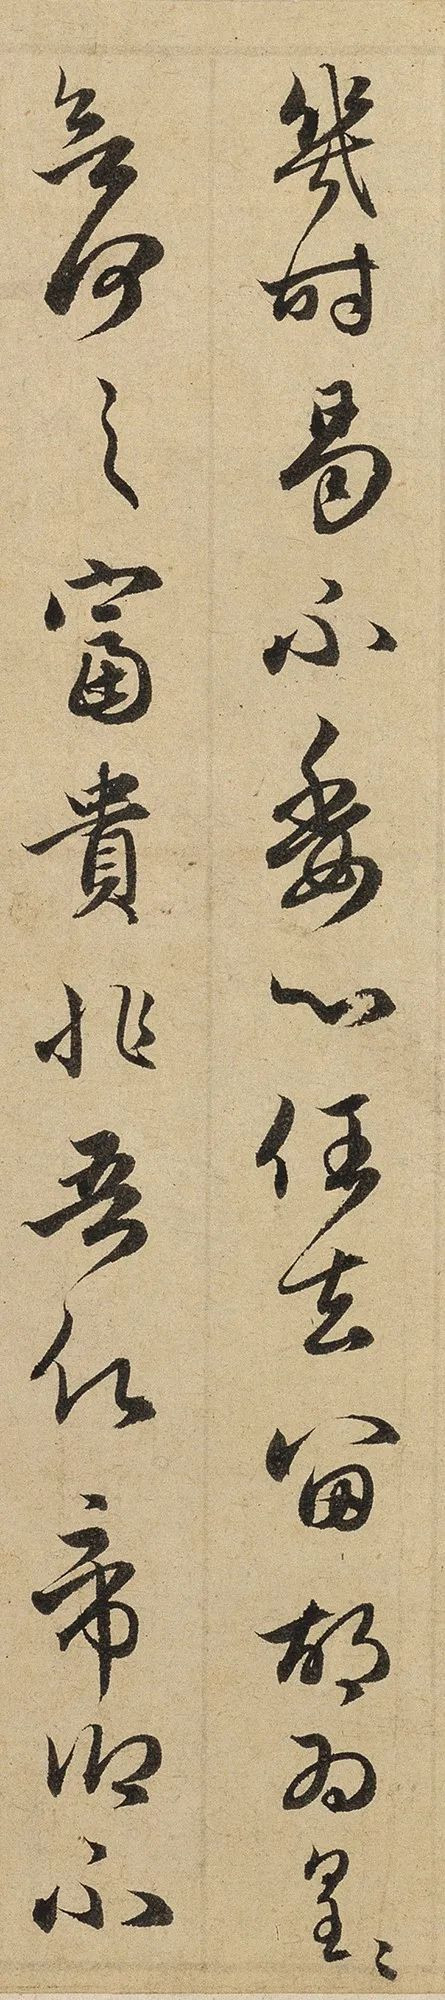 幾時曷不委心任去留胡為皇〻
欲何之富貴非吾願帝鄉不